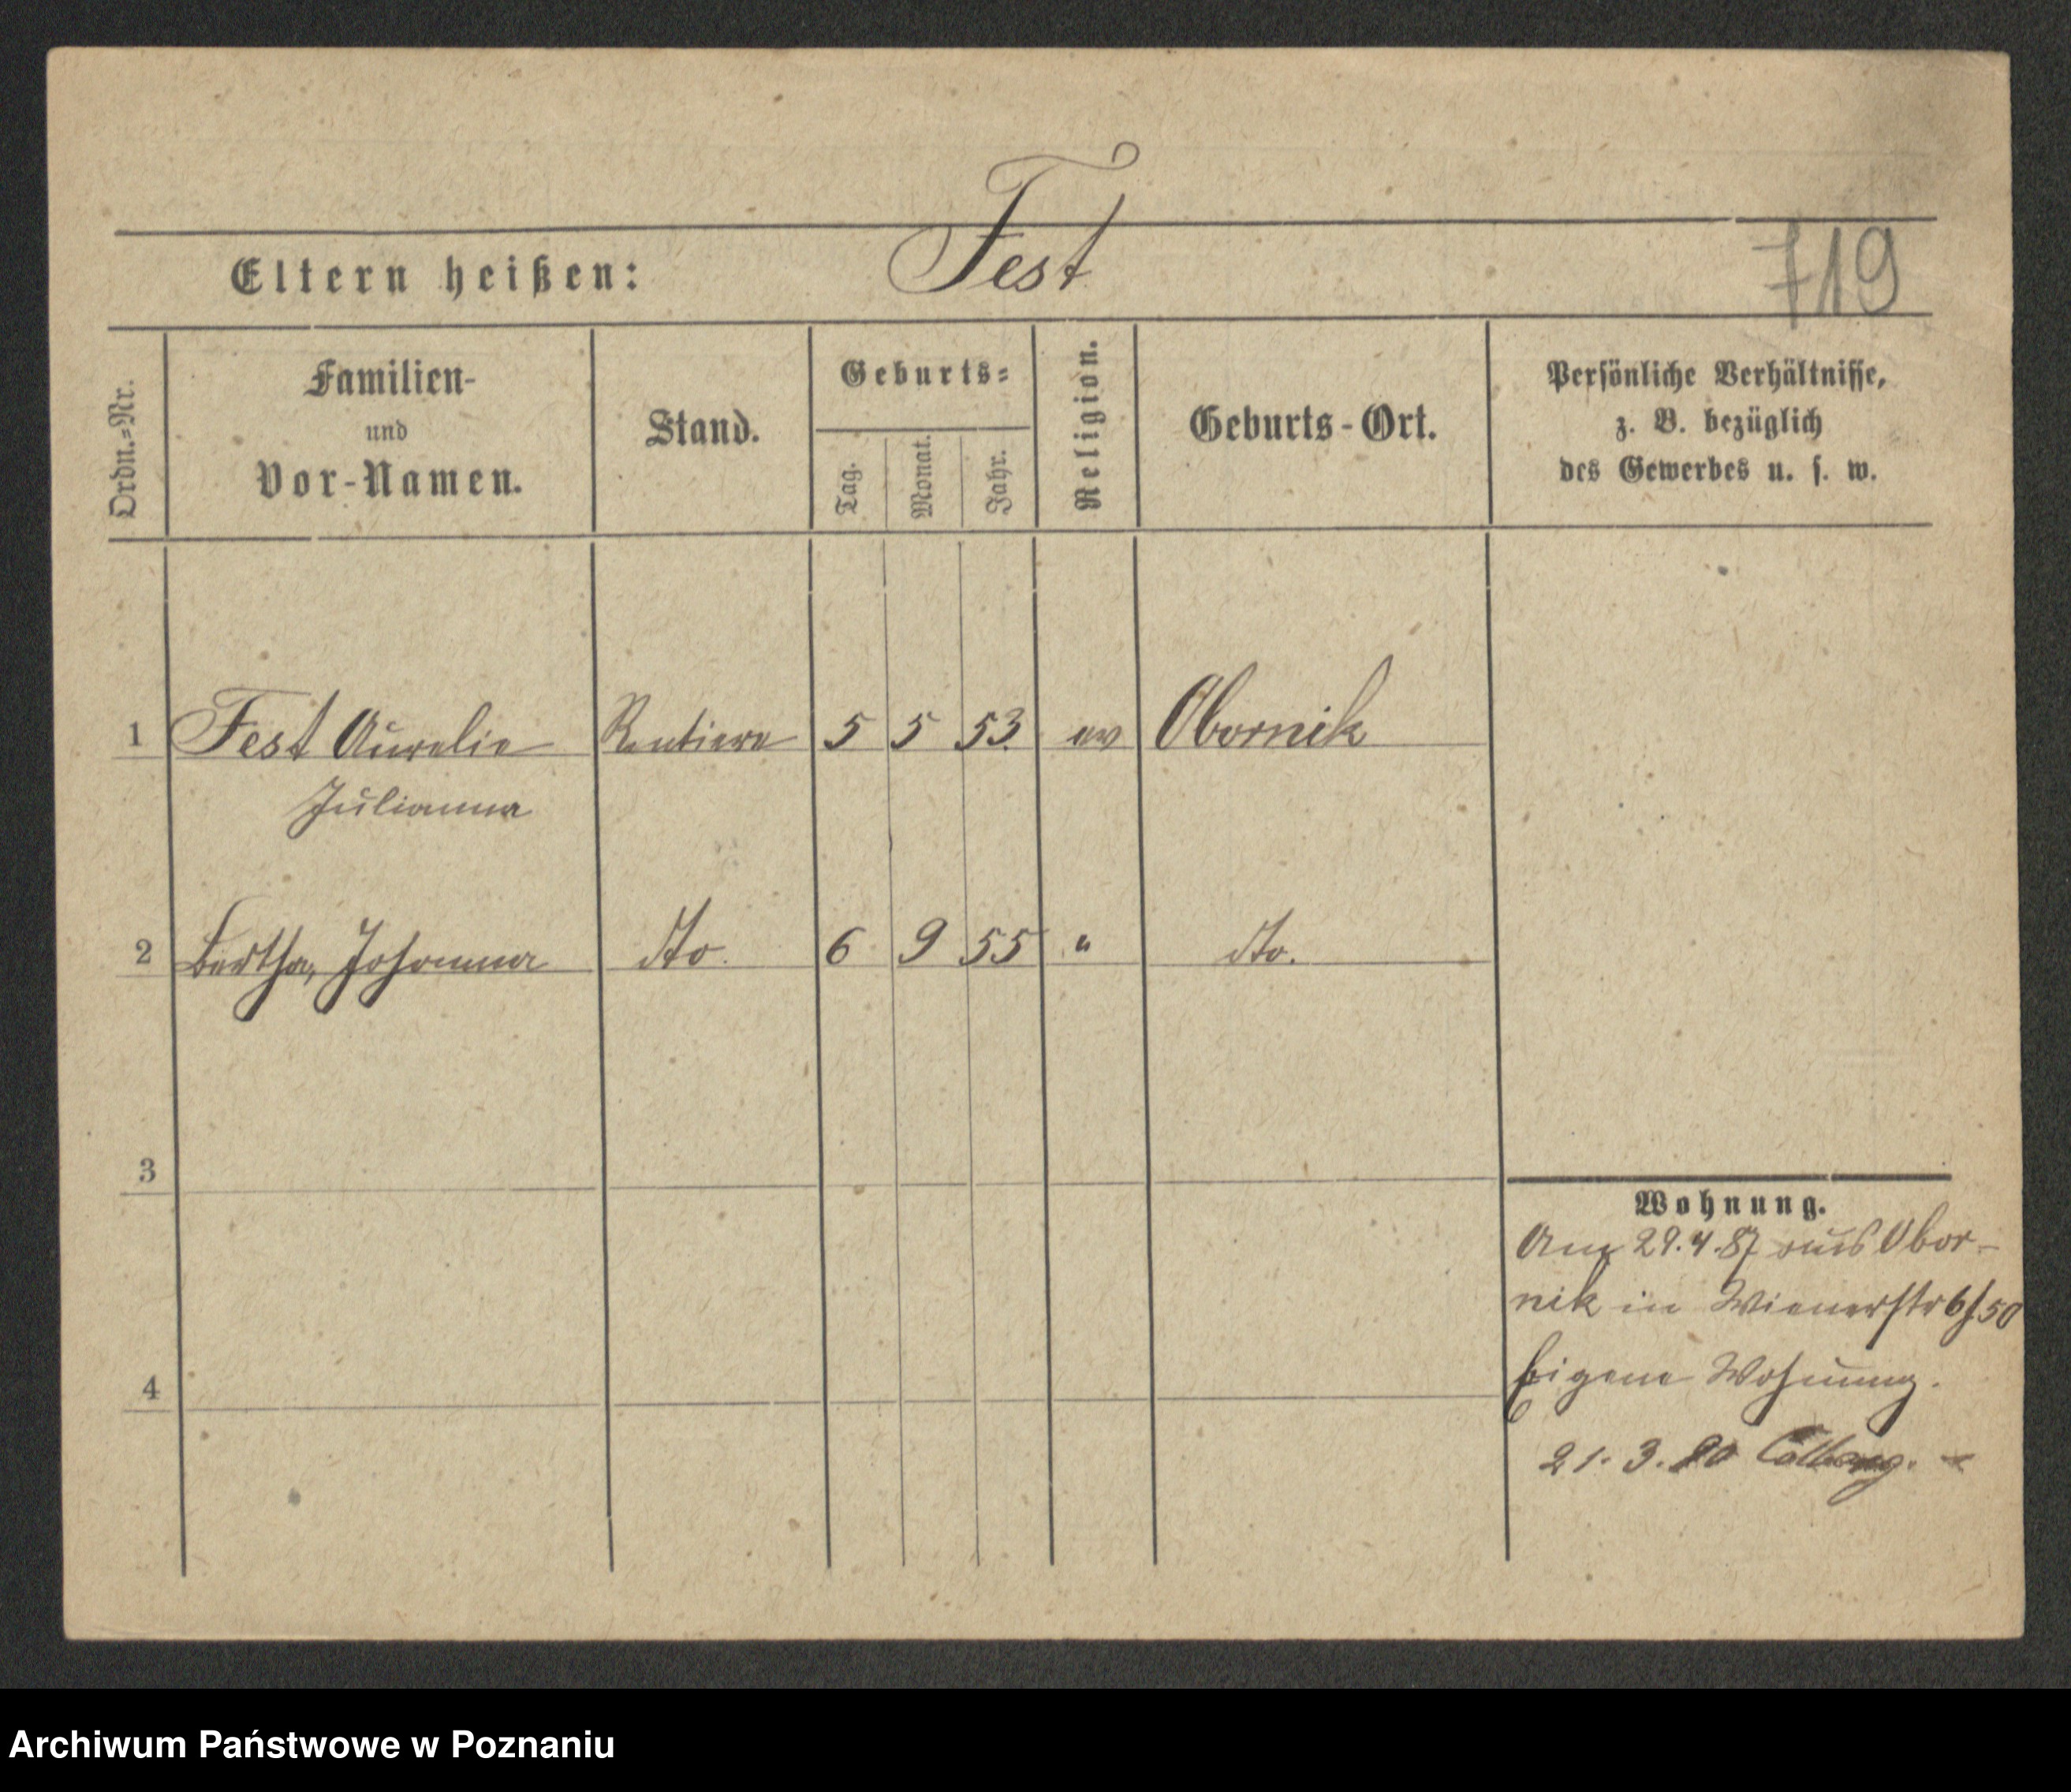 Fest
Eltern heißen:
719
Ordn.=Nr.
Familien-
und
Vor-Namen.
Stand.
Geburts=
Tag.
Monat.
Jahr.
Religion.
Geburts-Ort.
Persönliche Verhältnisse,
z. B. bezüglich
des Gewerbes u. s. w.
1 Fest Aurelie Rentiere 5 5 53. ev Obornik
Julianna
2 Bertha, Johanna dto. 6 9 55 " dto.
3
4
Wohnung.
Am 29.4.87 aus Obor-
nik in Wienerstr 6
Eigene Wohnung.
21. 3. 90 Colberg.
Archiwum Państwowe w Poznaniu